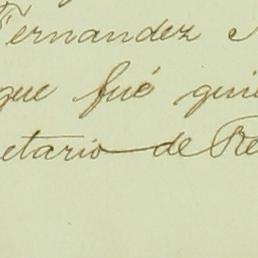 Fernandez
que fué
etario de Re